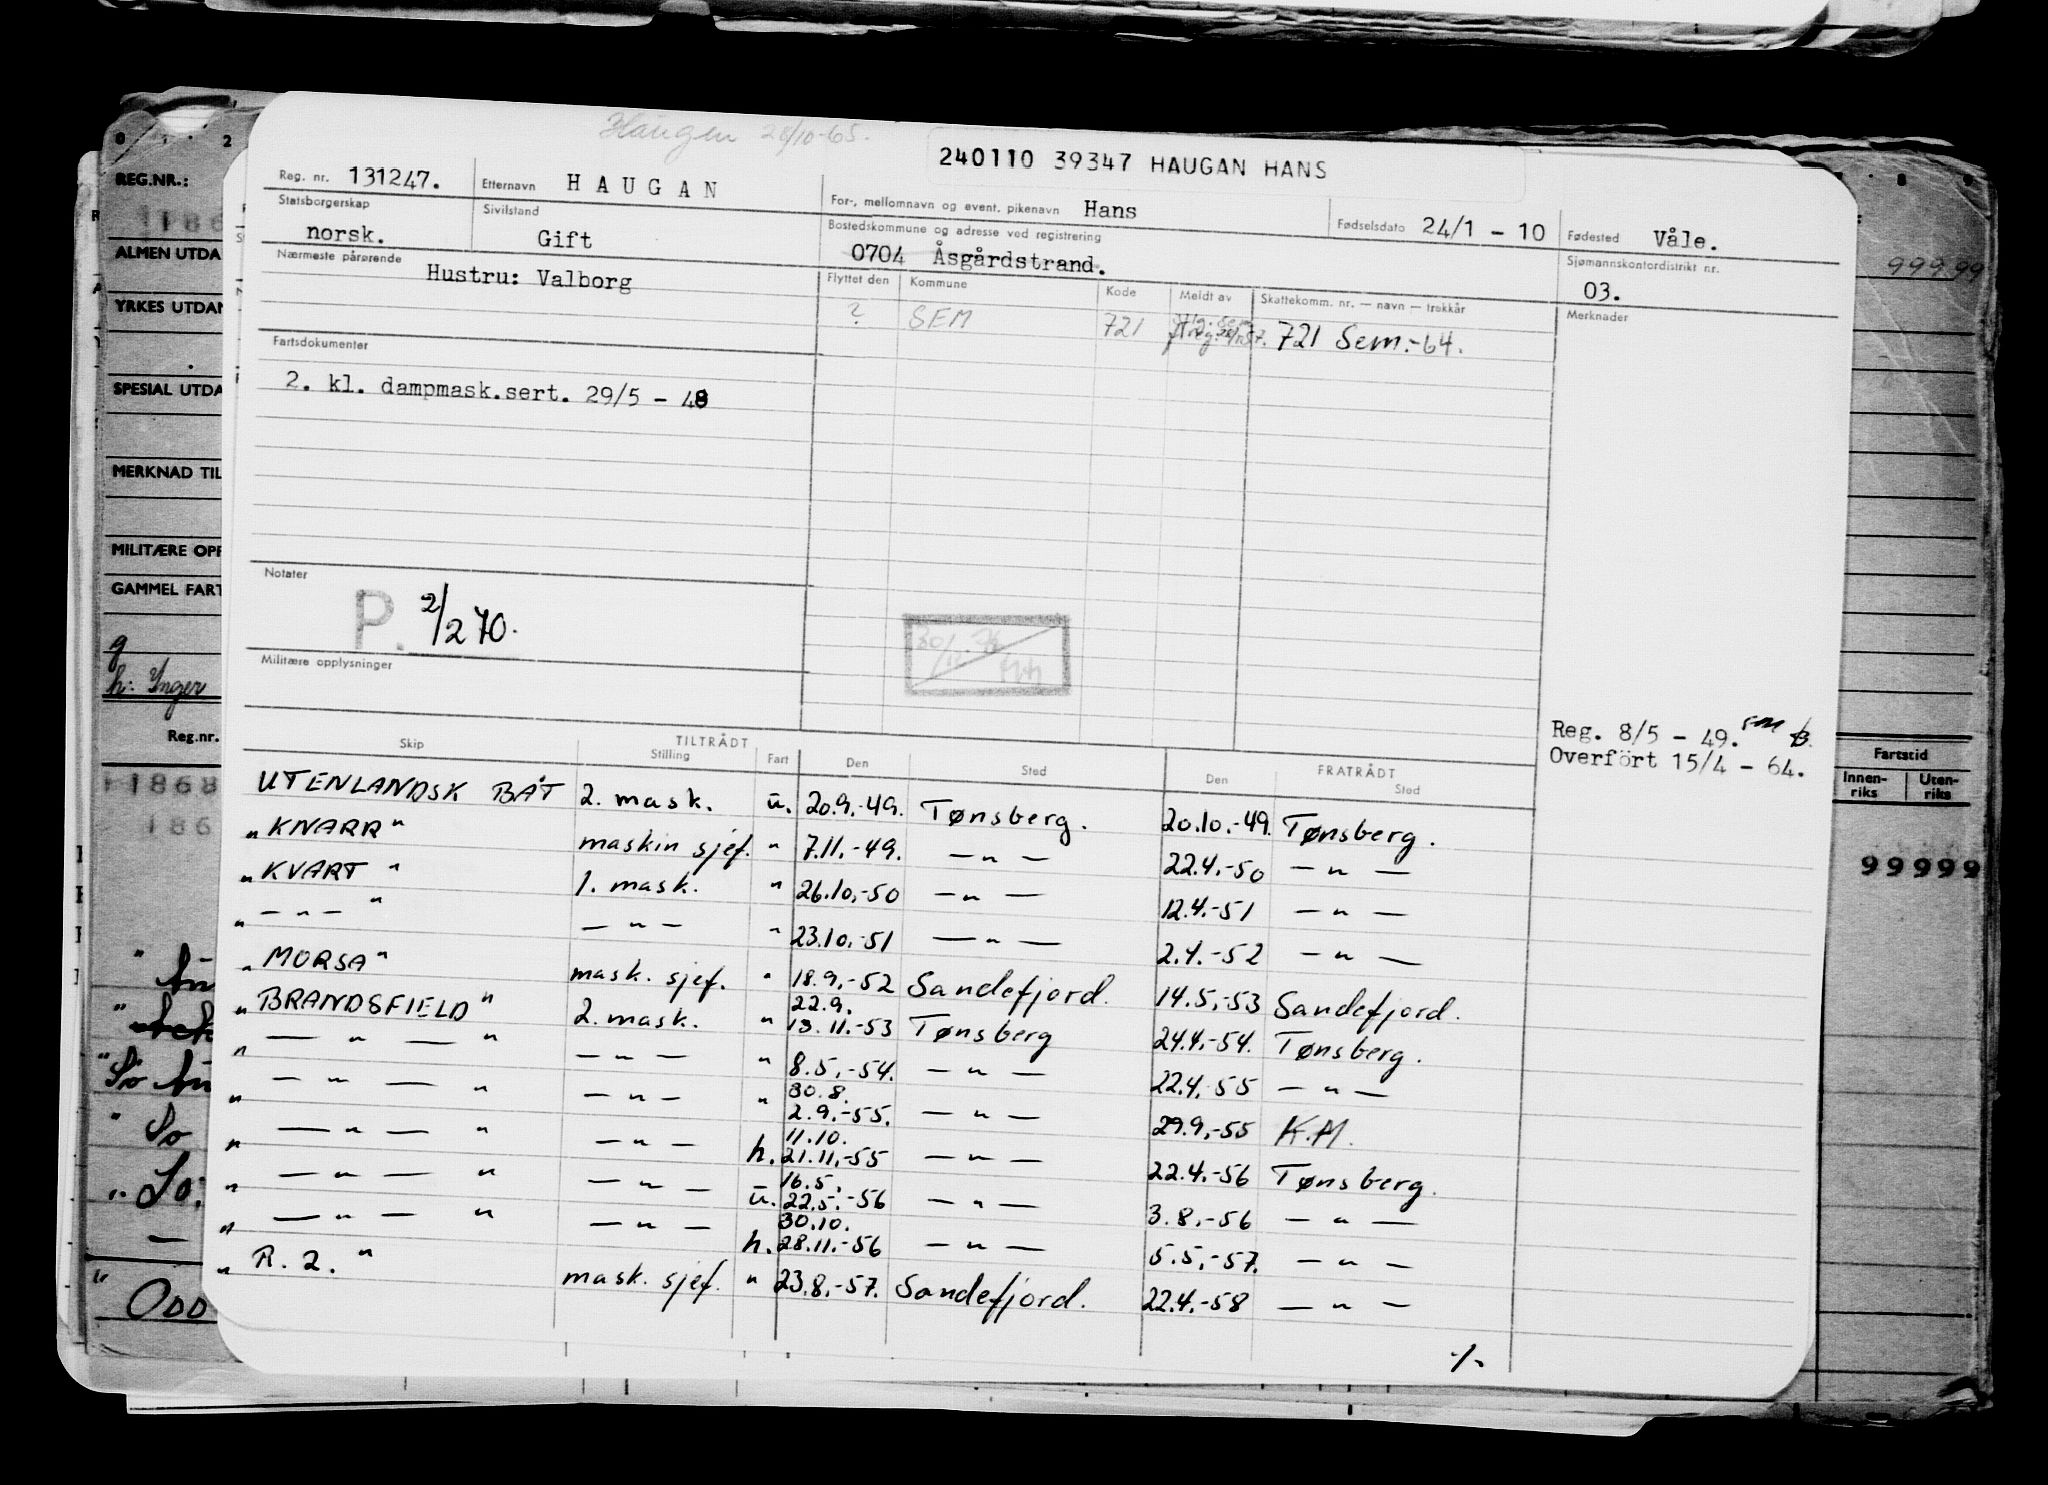 Haugen 28/10-65.
240110 39347 HAUGAN HANS
Reg. nr. 131247. Etternavn HAUGAN For-, mellomnavn og event. pikenavn Hans Fødselsdato 24/1 - 10 Fødested Våle.
Statsborgerskap norsk. Sivilstand Gift Bostedskommune og adresse ved registrering 0704 Åsgårdstrand. Sjømannskontordistrikt nr. 03.
Nærmeste pårørende Hustru: Valborg
Flyttet den Kommune Kode Meldt av Skattekomm. nr. — navn — trekkår Merknader
? SEM 721 721 Sem.-64.
Fartsdokumenter
2. kl. dampmask.sert. 29/5 - 48
Notater
P. 2/2 70.
Militære opplysninger
Reg. 8/5 - 49.
Overført 15/4 - 64.
Skip TILTRÅDT Stilling Fart Den Sted FRATRÅDT Den Sted
UTENLANDSK BÅT 2. mask. u. 20.9.-49. Tønsberg. 20.10.-49. Tønsberg.
"KNARR" maskin sjef. " 7.11.-49. — " — 22.4.-50 — " —
"KVART" 1. mask. " 26.10.-50 — " — 12.4.-51 — " —
" — " — " — " — " 23.10.-51 — " — 2.4.-52 — " —
"MORSA" mask. sjef. " 18.9.-52 Sandefjord. 14.5.-53 Sandefjord.
"BRANDSFIELD" 2. mask. " 22.9. 13.11.-53 Tønsberg 24.4.-54. Tønsberg.
" — " — " — " — " 8.5.-54. — " — 22.4.-55 — " —
" — " — " — " — " 30.8. 2.9.-55. — " — 29.9.-55 K.M.
" — " — " — " — h. 11.10. 21.11.-55 — " — 22.4.-56 Tønsberg.
" — " — " — " — u. 16.5. 22.5.-56 — " — 3.8.-56 — " —
" — " — " — " — h. 30.10. 28.11.-56 — " — 5.5.-57. — " —
"R. 2." mask. sjef. " 23.8.-57. Sandefjord. 22.4.-58 — " —
REG.NR.:
ALMEN UTDA
YRKES UTDAN
SPESIAL UTDA
MERKNAD TIL
MILITÆRE OPP
GAMMEL FART
g
h: Inger
Reg.nr.
1868
186
So
Odd
999.99
Fartstid
Innen-riks Uten-riks
99999